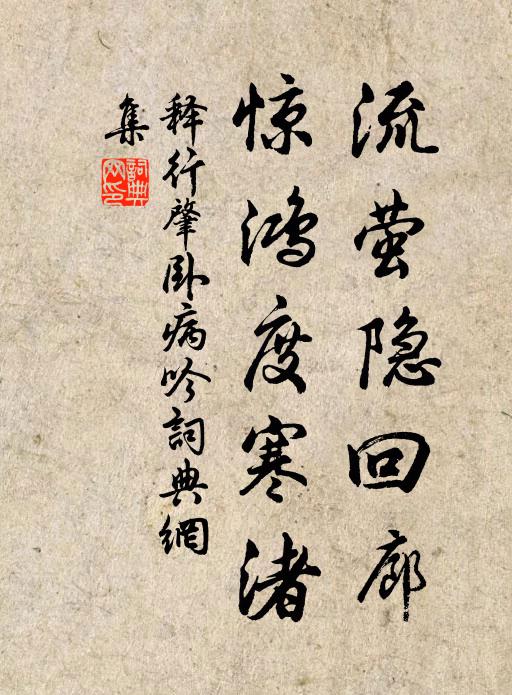 流萤隐回廊
惊鸿度寒渚
释行肇卧病吟詞典網
集
詞典網印